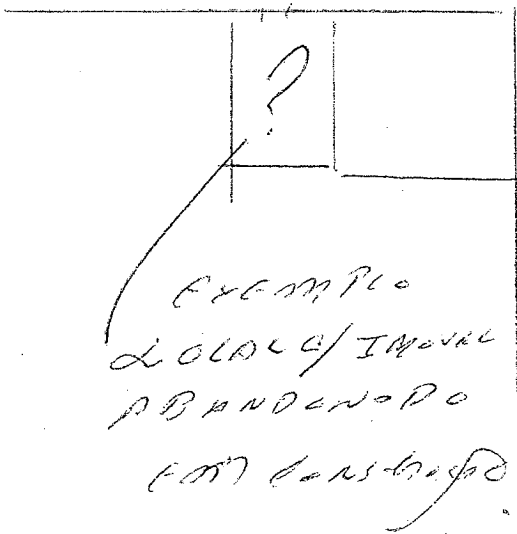 ?
EXEMPLO
LOCAL C/ IMOVEL
ABANDONADO
EM CONSTRUÇÃO.